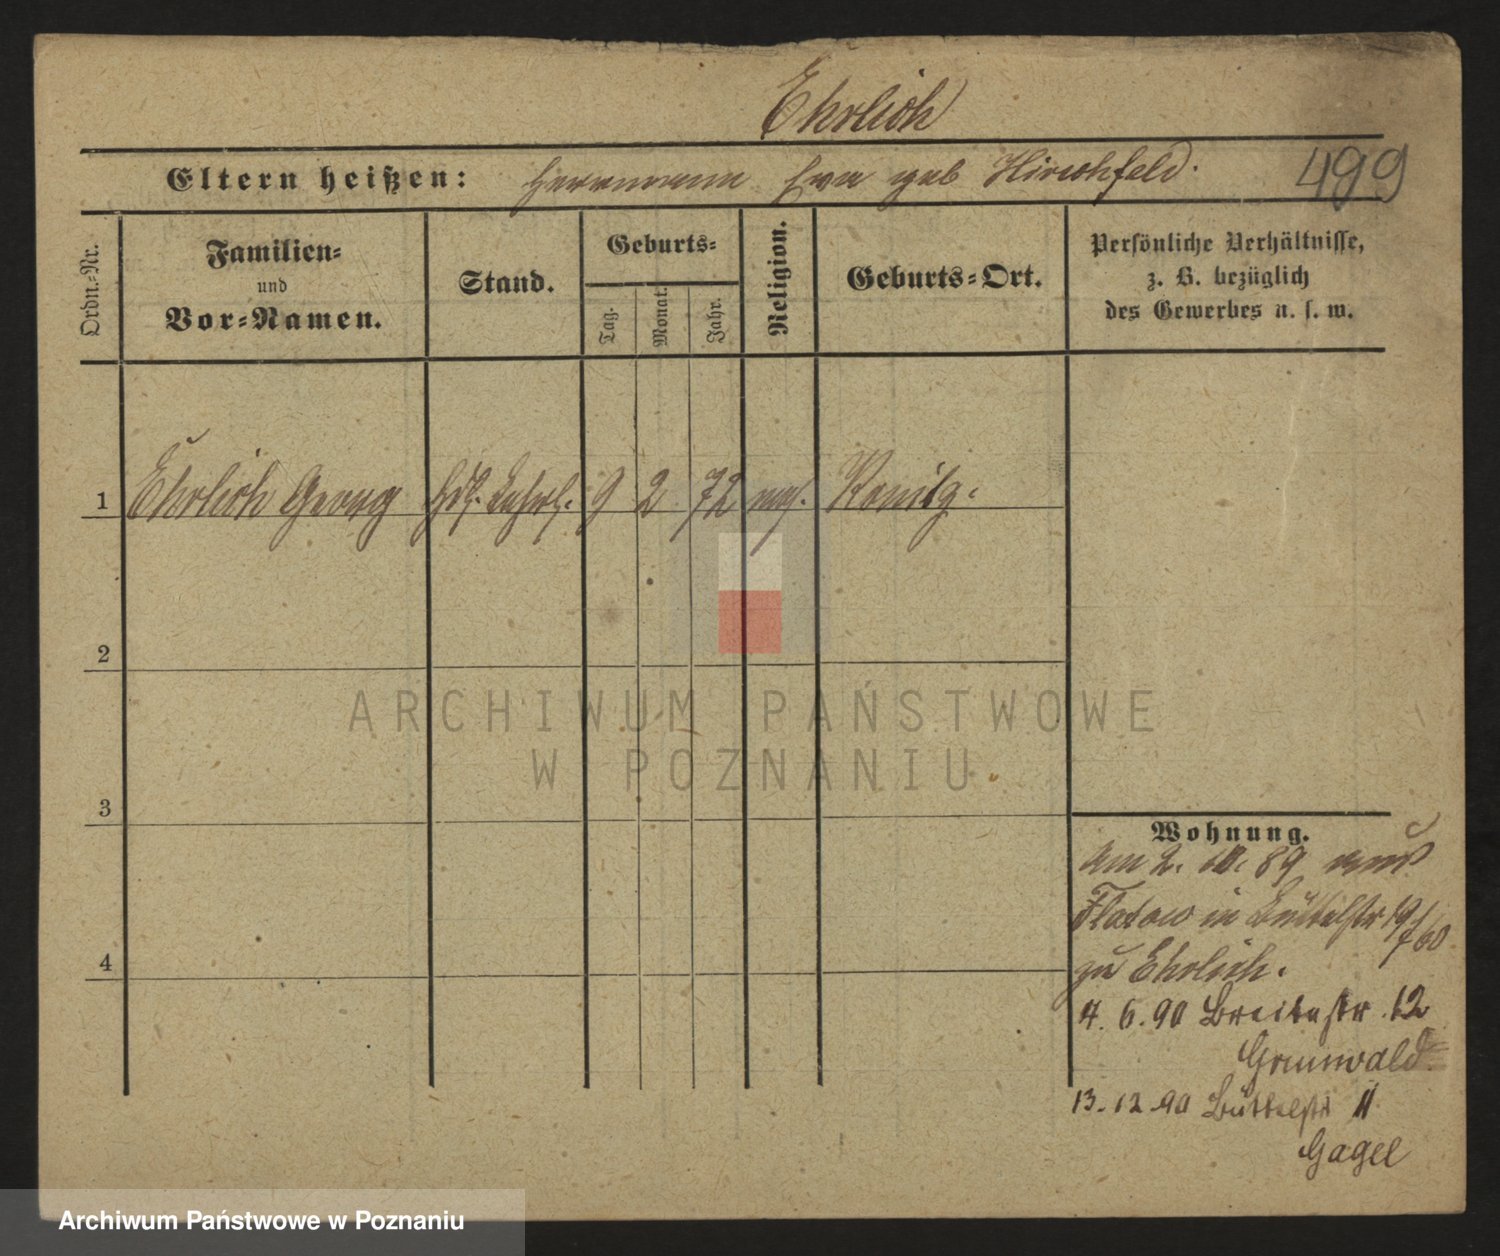 Ehrlich
Eltern heißen: Herrmann Eva geb Hirschfeld.
499
Ordn.-Nr.
Familien-
und
Vor-Namen.
Stand.
Geburts-
Tag.
Monat.
Jahr.
Religion.
Geburts-Ort.
Persönliche Verhältnisse,
z. B. bezüglich
des Gewerbes u. s. w.
1 Ehrlich Georg Hdl. Lehrl. 9 2 72 mos. Konitz.
2
3
4
Wohnung.
Am 2. 10. 89 aus
Flatow in Büttelstr 19/
zu Ehrlich.
4. 6. 90 Breitestr. 12
Grunwald
13. 12. 90 Büttelstr 11
Gagel
ARCHIWUM PAŃSTWOWE
W POZNANIU
Archiwum Państwowe w Poznaniu